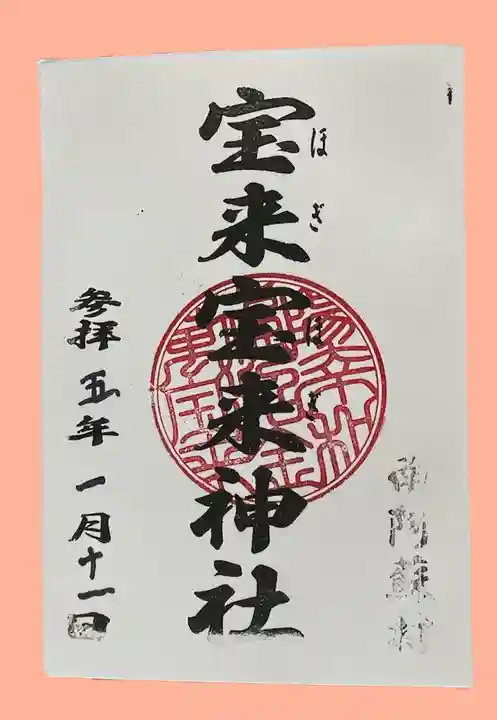 南阿蘇村
宝来宝来神社
ほぎほぎ
参拝 五年 一月十一日